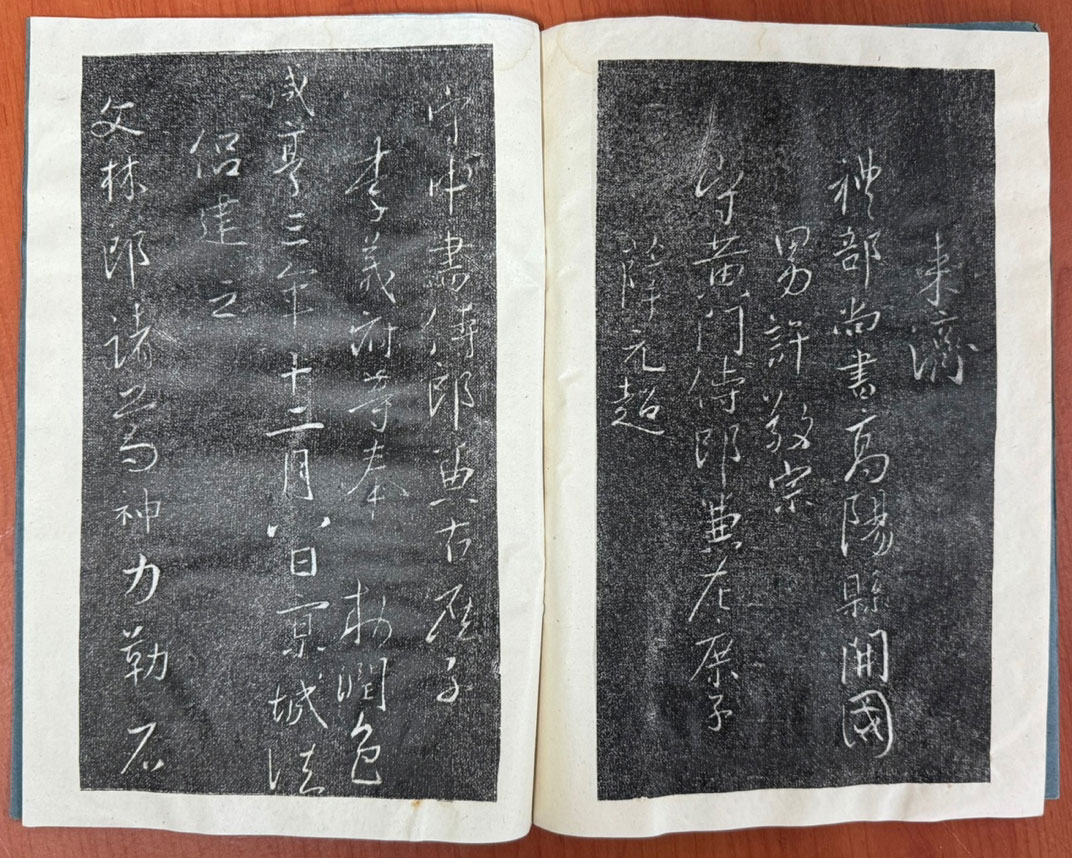 來濟
禮部尚書高陽縣開國
男許敬宗
守黃門侍郎兼左庶子
薛元超
守中書侍郎兼右庶子
李義府等奉 勅潤色
咸亨三年十二月八日京城法
侶建立
文林郎諸葛神力勒石